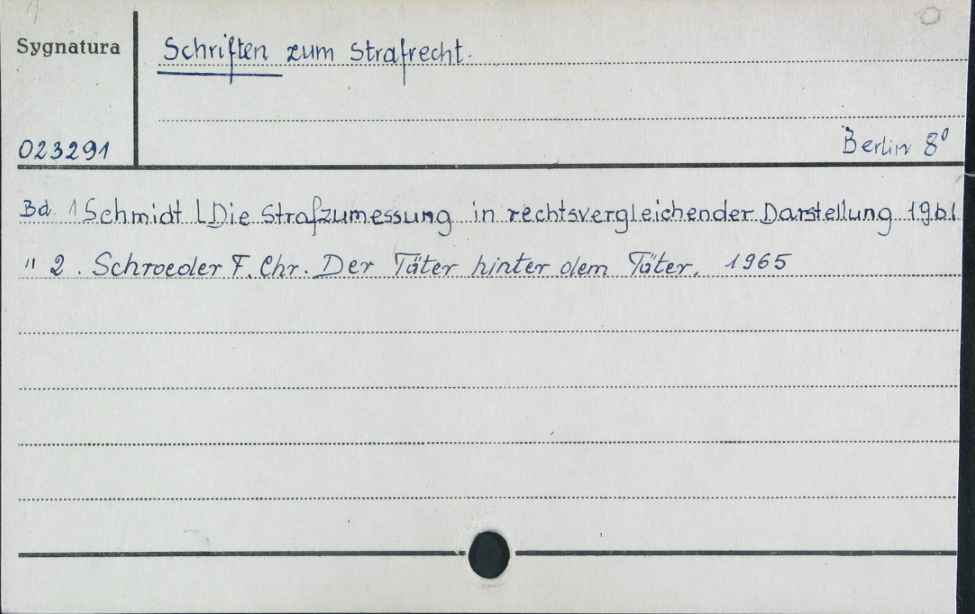 Sygnatura
Schriften zum Strafrecht.
023291
Berlin 8⁰
Bd 1 Schmidt L Die Strafzumessung in rechtsvergleichender Darstellung 1961
" 2. Schroeder F. Chr. Der Täter hinter dem Täter. 1965